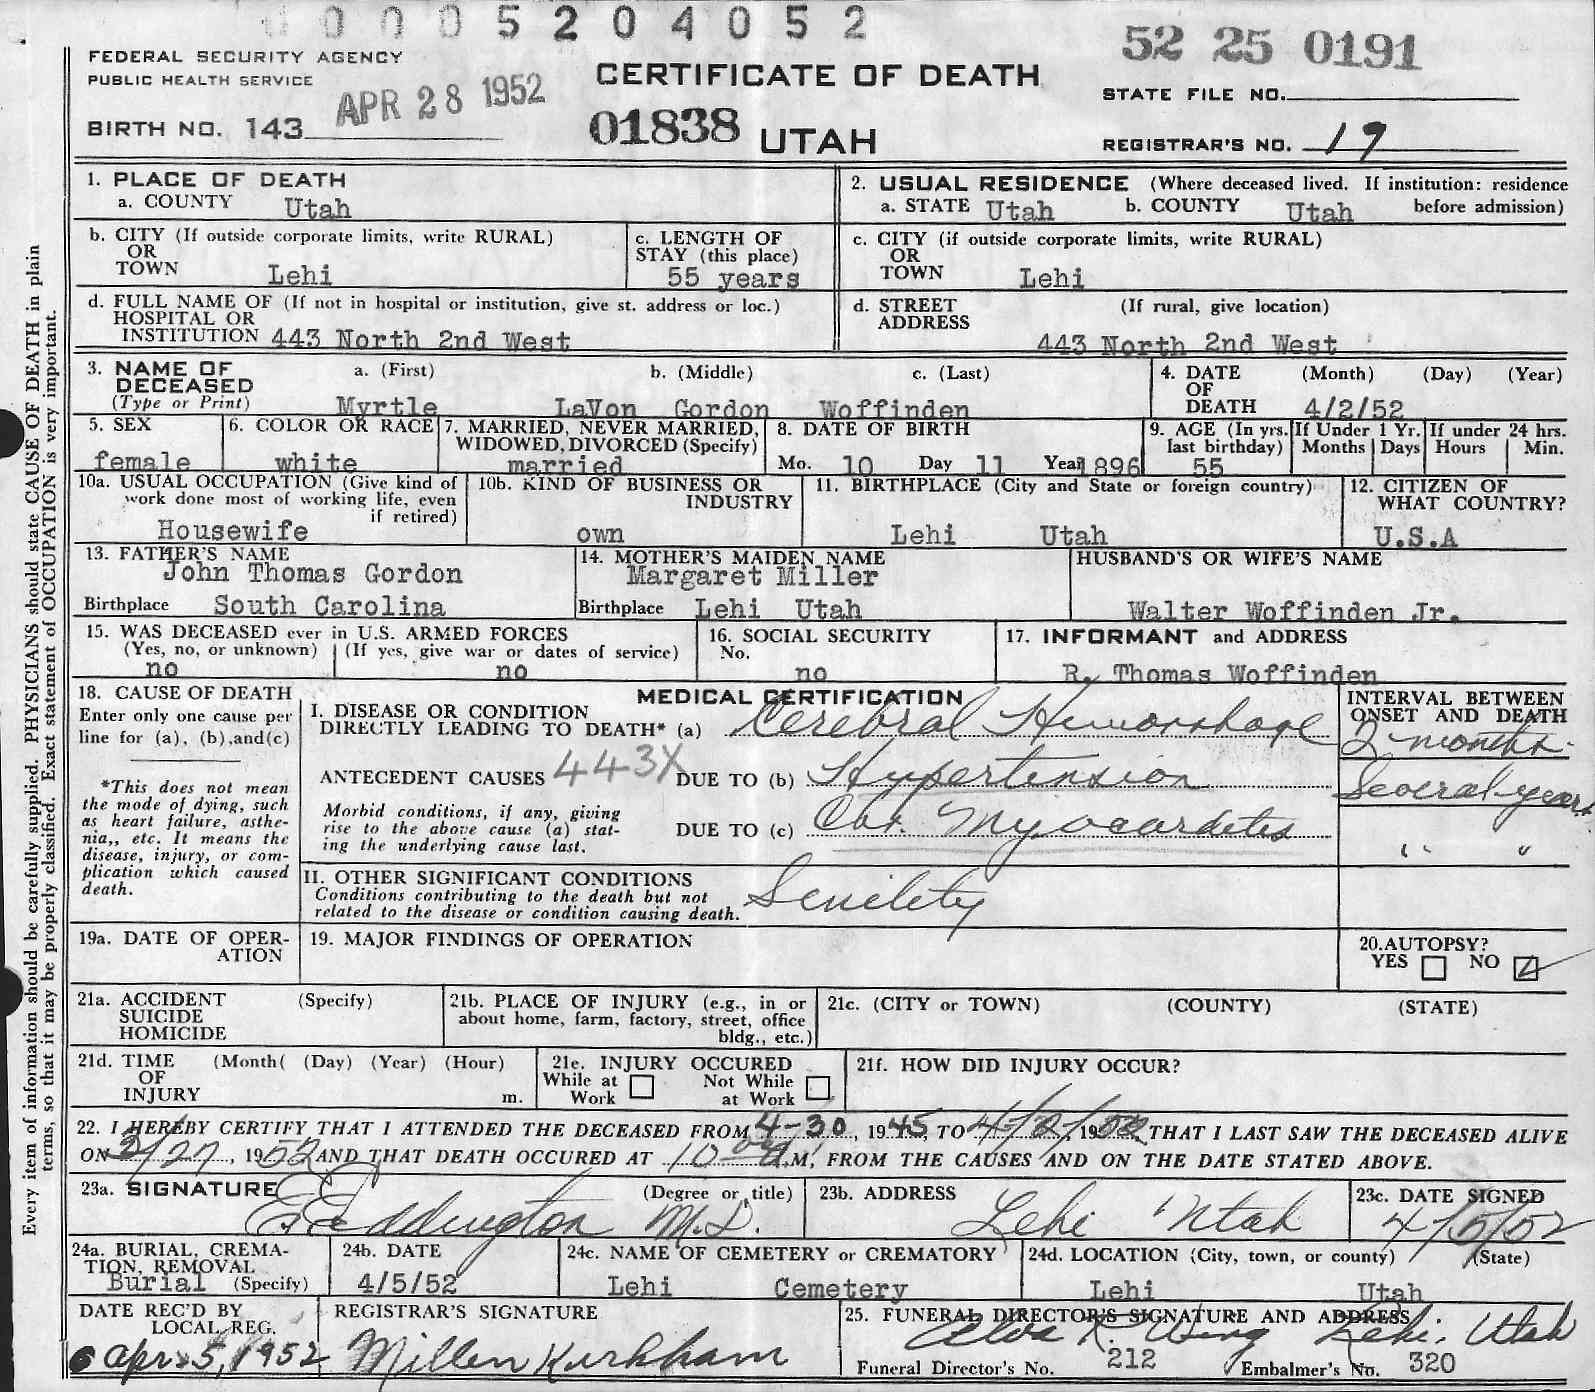 0 0 0 5 2 0 4 0 5 2
52 25 0191
FEDERAL SECURITY AGENCY
PUBLIC HEALTH SERVICE
APR 28 1952
CERTIFICATE OF DEATH
STATE FILE NO.
BIRTH NO. 143
01838 UTAH
REGISTRAR'S NO. 19
1. PLACE OF DEATH
a. COUNTY Utah
2. USUAL RESIDENCE (Where deceased lived. If institution: residence before admission)
a. STATE Utah b. COUNTY Utah
b. CITY (If outside corporate limits, write RURAL)
OR
TOWN Lehi
c. LENGTH OF
STAY (this place)
55 years
c. CITY (if outside corporate limits, write RURAL)
OR
TOWN Lehi
d. FULL NAME OF (If not in hospital or institution, give st. address or loc.)
HOSPITAL OR
INSTITUTION 443 North 2nd West
d. STREET (If rural, give location)
ADDRESS
443 North 2nd West
3. NAME OF
DECEASED
(Type or Print)
a. (First) b. (Middle) c. (Last)
Myrtle LaVon Gordon Woffinden
4. DATE (Month) (Day) (Year)
OF
DEATH 4/2/52
5. SEX
female
6. COLOR OR RACE
white
7. MARRIED, NEVER MARRIED,
WIDOWED, DIVORCED (Specify)
married
8. DATE OF BIRTH
Mo. 10 Day 11 Year 1896
9. AGE (In yrs.
last birthday)
55
If Under 1 Yr.
Months Days
If under 24 hrs.
Hours Min.
10a. USUAL OCCUPATION (Give kind of
work done most of working life, even
if retired)
Housewife
10b. KIND OF BUSINESS OR
INDUSTRY
own
11. BIRTHPLACE (City and State or foreign country)
Lehi Utah
12. CITIZEN OF
WHAT COUNTRY?
U.S.A
13. FATHER'S NAME
John Thomas Gordon
Birthplace South Carolina
14. MOTHER'S MAIDEN NAME
Margaret Miller
Birthplace Lehi Utah
HUSBAND'S OR WIFE'S NAME
Walter Woffinden Jr.
15. WAS DECEASED ever in U.S. ARMED FORCES
(Yes, no, or unknown) (If yes, give war or dates of service)
no no
16. SOCIAL SECURITY
No.
no
17. INFORMANT and ADDRESS
R. Thomas Woffinden
18. CAUSE OF DEATH
Enter only one cause per
line for (a), (b),and(c)
*This does not mean
the mode of dying, such
as heart failure, asthe-
nia,, etc. It means the
disease, injury, or com-
plication which caused
death.
MEDICAL CERTIFICATION
I. DISEASE OR CONDITION
DIRECTLY LEADING TO DEATH* (a) Cerebral Hemorrhage
ANTECEDENT CAUSES 443X DUE TO (b) Hypertension
Morbid conditions, if any, giving
rise to the above cause (a) stat-
ing the underlying cause last.
DUE TO (c) Chr. Myocardetes
INTERVAL BETWEEN
ONSET AND DEATH
2 months
Several years
" "
II. OTHER SIGNIFICANT CONDITIONS
Conditions contributing to the death but not
related to the disease or condition causing death.
Senility
19a. DATE OF OPER-
ATION
19. MAJOR FINDINGS OF OPERATION
20.AUTOPSY?
YES NO
21a. ACCIDENT (Specify)
SUICIDE
HOMICIDE
21b. PLACE OF INJURY (e.g., in or
about home, farm, factory, street, office
bldg., etc.)
21c. (CITY or TOWN) (COUNTY) (STATE)
21d. TIME (Month( (Day) (Year) (Hour)
OF
INJURY m.
21e. INJURY OCCURED
While at Work
Not While at Work
21f. HOW DID INJURY OCCUR?
22. I HEREBY CERTIFY THAT I ATTENDED THE DECEASED FROM 4-30, 1945, TO 4/2/, 1952, THAT I LAST SAW THE DECEASED ALIVE
ON 3/27, 1952 AND THAT DEATH OCCURED AT 10 00 A.M, FROM THE CAUSES AND ON THE DATE STATED ABOVE.
23a. SIGNATURE (Degree or title)
E. Eddington M.D.
23b. ADDRESS
Lehi Utah
23c. DATE SIGNED
4/5/52
24a. BURIAL, CREMA-
TION, REMOVAL
Burial (Specify)
24b. DATE
4/5/52
24c. NAME OF CEMETERY or CREMATORY
Lehi Cemetery
24d. LOCATION (City, town, or county) (State)
Lehi Utah
DATE REC'D BY
LOCAL REG.
Apr. 5, 1952
REGISTRAR'S SIGNATURE
Millen Kirkham
25. FUNERAL DIRECTOR'S SIGNATURE AND ADDRESS
Elva R. Wing Lehi, Utah
Funeral Director's No. 212 Embalmer's No. 320
Every item of information should be carefully supplied. PHYSICIANS should state CAUSE OF DEATH in plain
terms, so that it may be properly classified. Exact statement of OCCUPATION is very important.